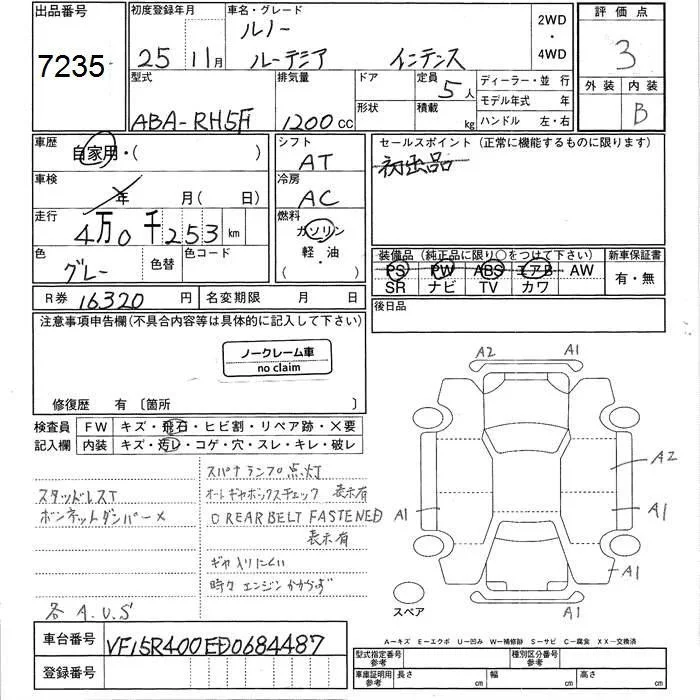 出品番号
7235
初度登録年月
25 11月
車名・グレード
ルノー
ルーテシア インテンス
2WD
・
4WD
評価点
3
外装 内装
B
型式
ABA-RH5H
排気量
1200 CC
ドア
形状
定員 5 人
積載 kg
ディーラー・並行
モデル年式 年
ハンドル 左・右
車歴
自家用・( )
シフト
AT
セールスポイント (正常に機能するものに限ります)
初出品
車検
年 月 ( 日)
冷房
AC
走行
4万0千253 km
燃料
ガソリン
軽・油
( )
色
グレー
色替
色コード
装備品 (純正品に限り○をつけて下さい)
PS PW ABS エアB AW
SR ナビ TV カワ
新車保証書
有・無
R券 16320 円
名変期限 月 日
後日品
注意事項申告欄(不具合内容等は具体的に記入して下さい)
ノークレーム車
no claim
修復歴 有 〔箇所 〕
検査員
記入欄
FW キズ・飛石・ヒビ割・リペア跡・×要
内装 キズ・汚レ・コゲ・穴・スレ・キレ・破レ
スタッドレスT
ボンネットダンパー×
各 A.U.S
スパナランプ点灯
オートギヤボックスチェック 表示有
○ REAR BELT FASTENED
表示有
ギヤ入りにくい
時々エンジンかからず
A2 A1
A2
A1 A1
A1
A1
スペア
車台番号
VF15R400ED0684487
登録番号
A-キズ E-エクボ U-凹み W-補修跡 S-サビ C-腐食 XX-交換済
型式指定番号
参考
種別区分番号
参考
車庫証明用
参考
長さ cm 幅 cm 高さ cm